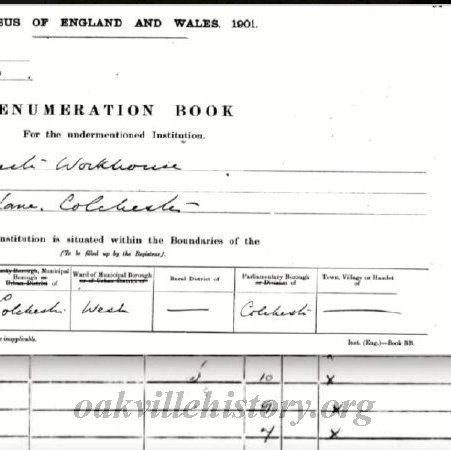 SUS OF ENGLAND AND WALES, 1901.
ENUMERATION BOOK
For the undermentioned Institution.
Workhouse
Lane, Colchester
nstitution is situated within the Boundaries of the
(To be filled up by the Registrar.)
nty Borough, Municipal Borough or Urban District of
Ward of Municipal Borough or of Urban District of
Rural District of
Parliamentary Borough or Division of
Town, Village or Hamlet of
Colchester West — Colchester —
e inapplicable. Inst. (Eng.)—Book BB.
10 x
oakvillehistory.org
9 x
7 x